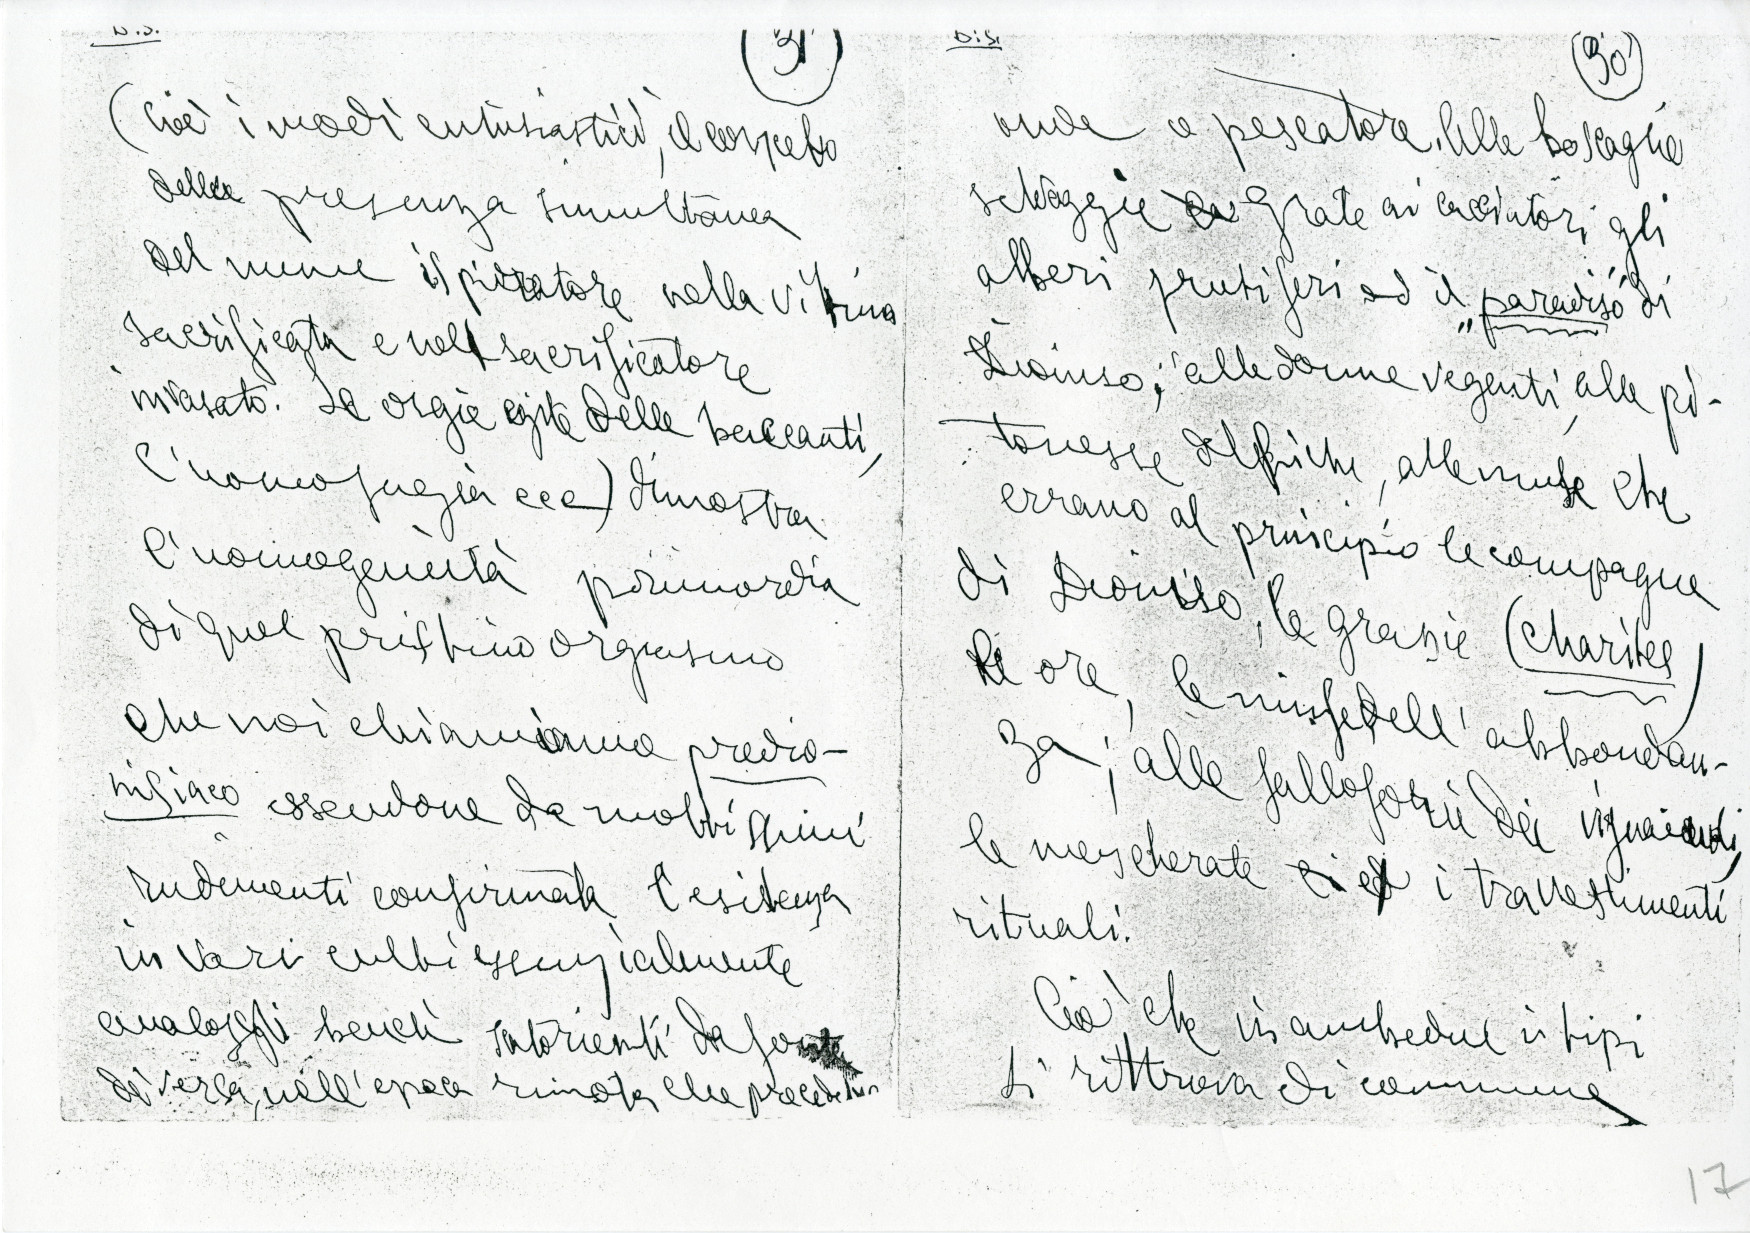 D.S.
31
(cioè i modi entusiastici, il concetto
della presenza simultanea
del nume ispiratore nella vittima
sacrificata e nel sacrificatore
invasato. Le orgie delle baccanti,
l'uomofagia ecc) dimostra
l'uomogeneità primordia
di quel pristino orgiasmo
che noi chiamiamo predio-
nisiaco essendone da moltissimi
rudimenti confirmata l'esistenza
in vari culti essenzialmente
analoghi benchè da fonte
diversa, nell'epoca rimota che precede
D.S.
30
onde a pescatore. Alle boscaglie
selvaggie grate ai cacciatori gli
alberi frutiferi ed il "paradiso" di
Dioniso; alle donne vegenti, alle pi-
tonesse delfiche, alle muse che
errano al principio le compagne
di Dioniso, le grazie (Charites)
le ore, le ninfe dell'abbondan-
za; alle falloforie dei vignaiuoli,
le mascherate ed i travestimenti
rituali.
Ciò che in ambedue i tipi
si rittrova di commune
17